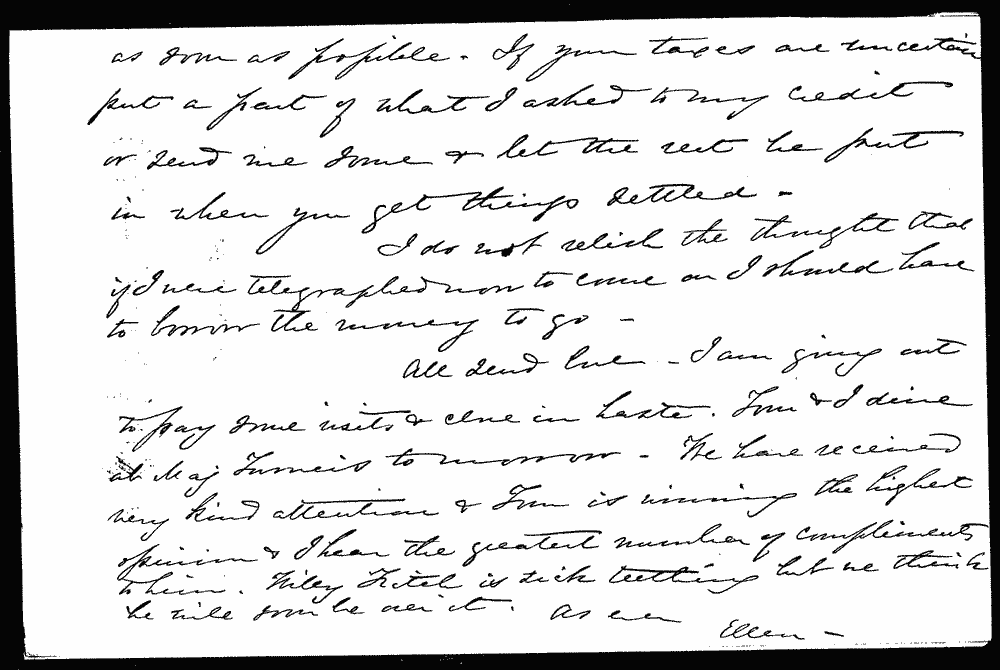 as soon as possible. If your taxes are uncertain
put a part of what I asked to my credit
or send me some & let the rest be put
in when you get things settled -
I do not relish the thought that
if I were telegraphed now to come on I should have
to borrow the money to go -
All send love - I am going out
to pay some visits & close in haste. Tom & I dine
at Maj Turner's tomorrow - We have received
very kind attention & Tom is winning the highest
opinion & I hear the greatest number of compliments
to him. Willy is sick teething but we think
he will soon be over it. As ever
Ellen -